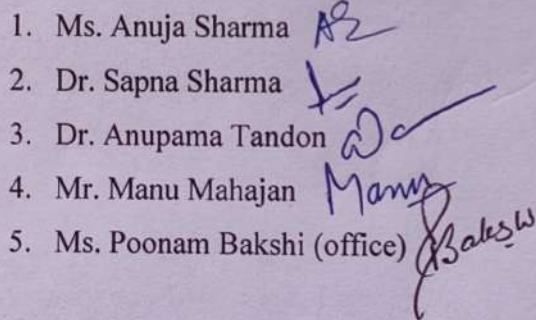 1. Ms. Anuja Sharma AS
2. Dr. Sapna Sharma
3. Dr. Anupama Tandon
4. Mr. Manu Mahajan Manu
5. Ms. Poonam Bakshi (office)